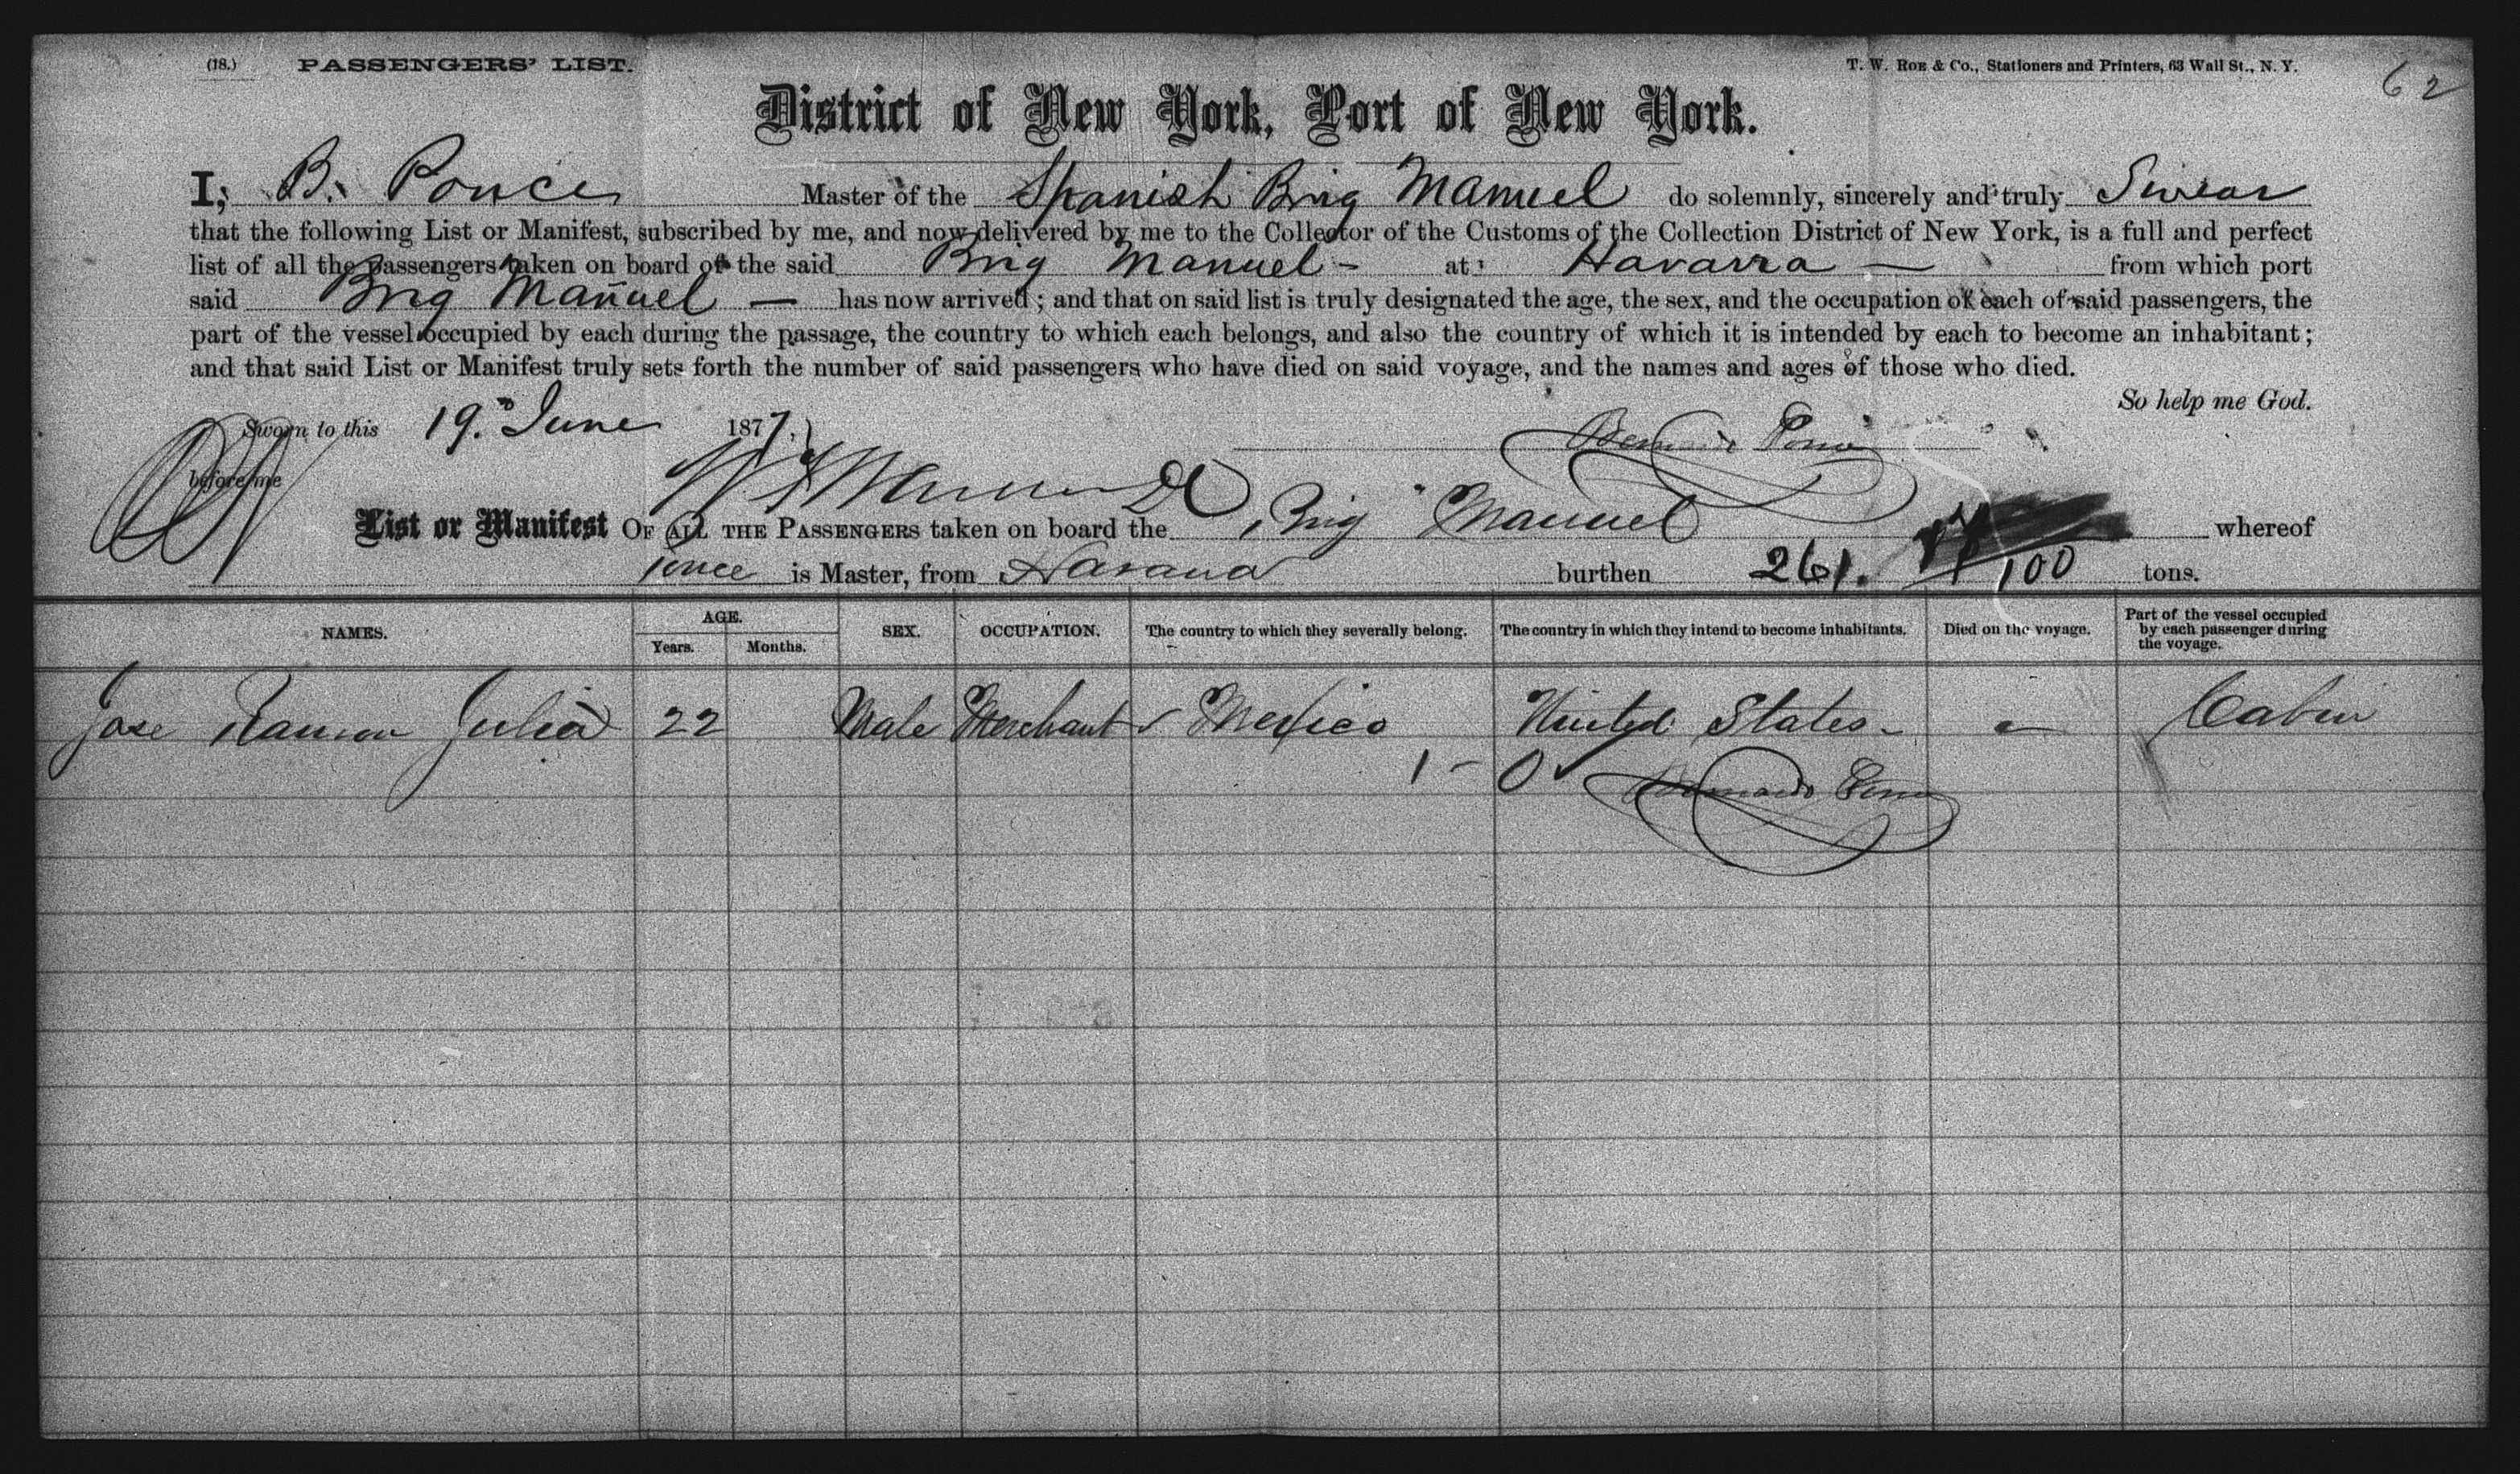 (18.) PASSENGERS' LIST. T. W. ROE & Co., Stationers and Printers, 63 Wall St., N. Y. 62
District of New York, Port of New York.
I, B. Ponce Master of the Spanish Brig Manuel do solemnly, sincerely and truly Swear
that the following List or Manifest, subscribed by me, and now delivered by me to the Collector of the Customs of the Collection District of New York, is a full and perfect
list of all the passengers taken on board of the said Brig Manuel - at Havana — from which port
said Brig Manuel — has now arrived; and that on said list is truly designated the age, the sex, and the occupation of each of said passengers, the
part of the vessel occupied by each during the passage, the country to which each belongs, and also the country of which it is intended by each to become an inhabitant;
and that said List or Manifest truly sets forth the number of said passengers who have died on said voyage, and the names and ages of those who died.
So help me God.
Sworn to this 19. June 1877. Bernardo Ponce
before me
List or Manifest OF ALL THE PASSENGERS taken on board the Brig "Manuel whereof
Ponce is Master, from Havana burthen 261. /100 tons.
NAMES. AGE. Years. Months. SEX. OCCUPATION. The country to which they severally belong. The country in which they intend to become inhabitants. Died on the voyage. Part of the vessel occupied by each passenger during the voyage.
Jose Ramon Juliá 22 Male Merchant ✓ Mexico United States - - Cabin
1 - 0 ✓ Bernardo Ponce